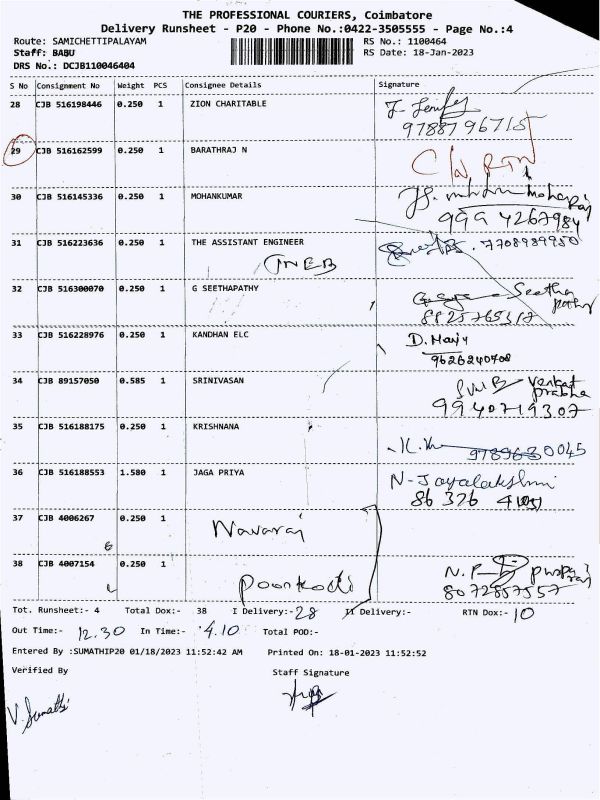 THE PROFESSIONAL COURIERS, Coimbatore
Delivery Runsheet - P20 - Phone No.:0422-3505555 - Page No.:4
Route: SAMICHETTIPALAYAM RS No.: 1100464
Staff: BABU RS Date: 18-Jan-2023
DRS No.: DCJB110046404
S No Consignment No Weight PCS Consignee Details Signature
28 CJB 516198446 0.250 1 ZION CHARITABLE
9788796715
29 CJB 516162599 0.250 1 BARATHRAJ N
RTN
30 CJB 516145336 0.250 1 MOHANKUMAR
9994267984
31 CJB 516223636 0.250 1 THE ASSISTANT ENGINEER 7708989950
TNEB
32 CJB 516300070 0.250 1 G SEETHAPATHY Seetha
pathy
8825765317
33 CJB 516228976 0.250 1 KANDHAN ELC D. Manjy
9626240708
34 CJB 89157050 0.585 1 SRINIVASAN Venkat
prabha
9940719307
35 CJB 516188175 0.250 1 KRISHNANA
9789630045
36 CJB 516188553 1.580 1 JAGA PRIYA N-Jayalakshmi
86376
37 CJB 4006267 0.250 1 Navaraj
38 CJB 4007154 0.250 1 Poonkodi N.P
8072857557
Tot. Runsheet:- 4 Total Dox:- 38 I Delivery:- 28 II Delivery:- RTN Dox:- 10
Out Time:- 12.30 In Time:- 4.10 Total POD:-
Entered By :SUMATHIP20 01/18/2023 11:52:42 AM Printed On: 18-01-2023 11:52:52
Verified By Staff Signature
V. Sumathi